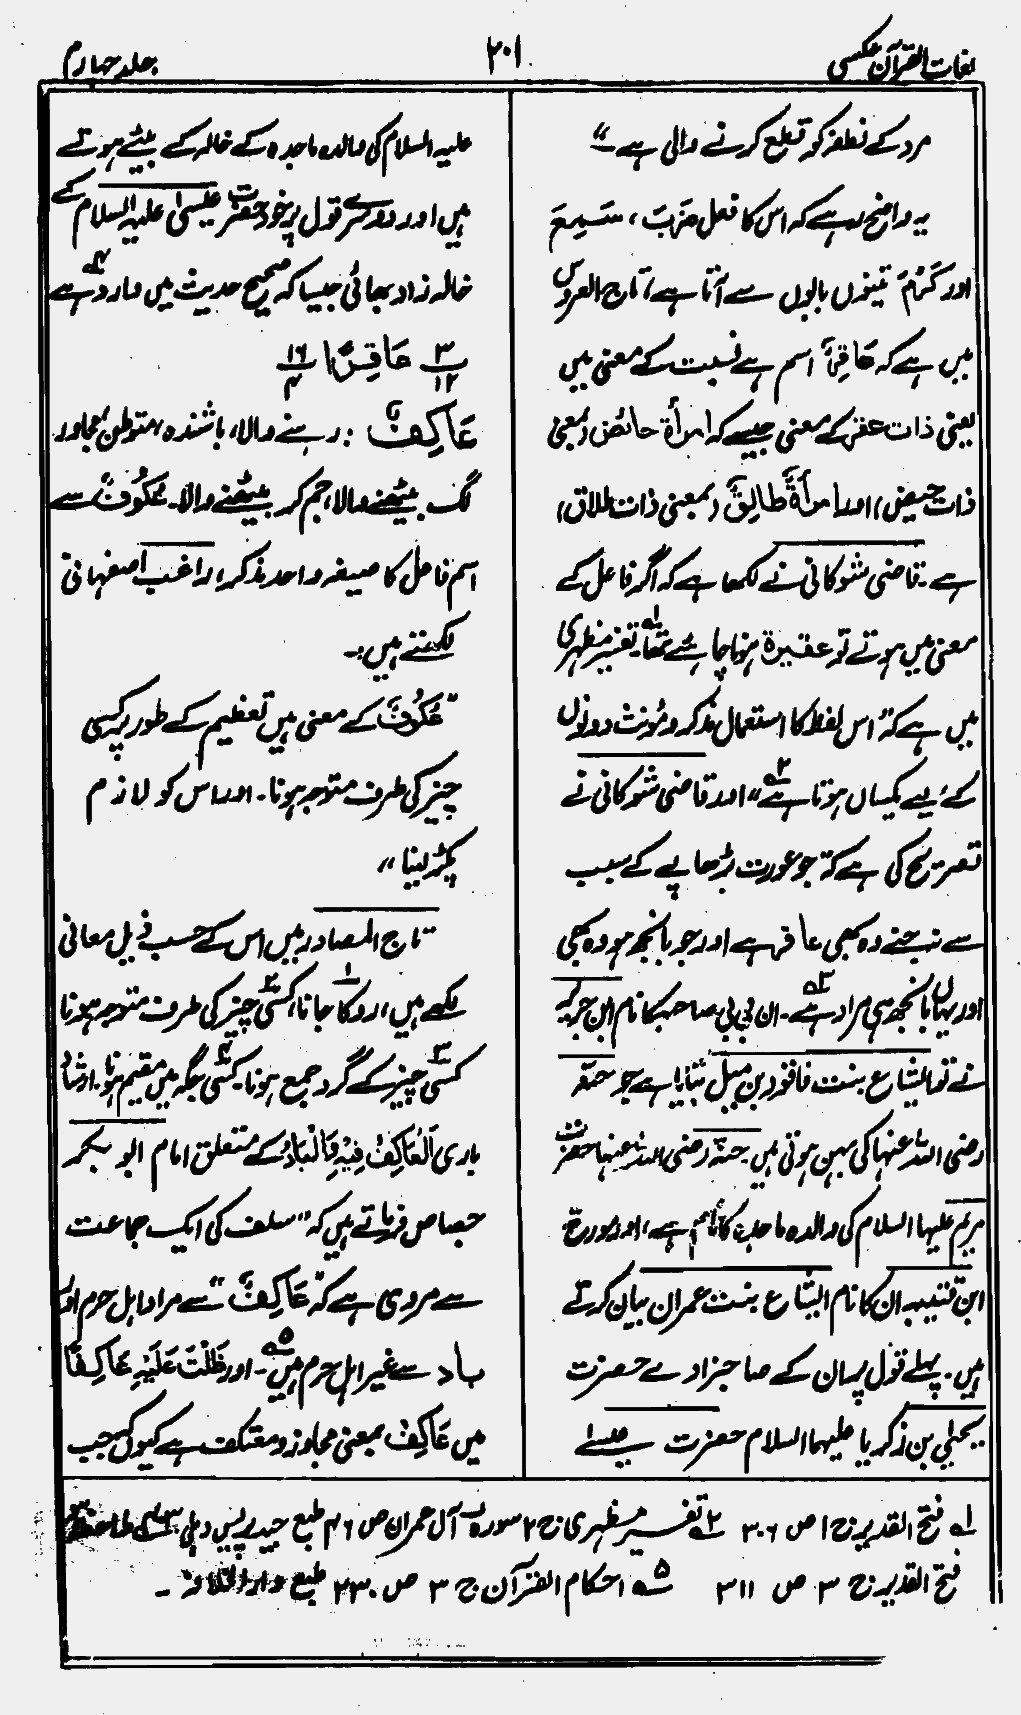 لغات القرآن عکسی
۲۰۱
جلد چہارم
مرد کے نطفہ کو قطع کرنے والی ہے"
یہ واضح رہے کہ اس کا فعل ضَرَبَ، سَمِعَ
اور کَرُمَ تینوں بابوں سے آتا ہے، تاج العروس
میں ہے کہ عَاقِرٌ اسم ہے نسبت کے معنی میں
یعنی ذات عقر کے معنی جیسے کہ امرأۃ حائض (بمعنی
ذات حیض) اور امرأۃٌ طالِقٌ (بمعنی ذات طلاق)
ہے۔ قاضی شوکانی نے لکھا ہے کہ اگر فاعل کے
معنی میں ہوتے تو عقیرۃ ہونا چاہئے تھا۔ تفسیر مظہری
میں ہے کہ "اس لفظ کا استعمال مذکر و مؤنث دونوں
کے لیے یکساں ہوتا ہے" اور قاضی شوکانی نے
تصریح کی ہے کہ "جو عورت بڑھاپے کے سبب
سے نہ جنے وہ بھی عاقر ہے اور جو بانجھ ہو وہ بھی
اور یہاں بانجھ ہی مراد ہے۔ ان بی بی صاحبہ کا نام ابن جریر
نے تو الیشاع بنت فاقود بن میل بتایا ہے جو حنّہ
رضی اللہ عنہا کی بہن ہوتی ہیں۔ حنّہ رضی اللہ عنہا حضرت
مریم علیہا السلام کی والدہ ماجدہ کا نام ہے، اور مورخ
ابن قتیبہ ان کا نام الیشاع بنت عمران بیان کرتے
ہیں۔ پہلے قول پر ان کے صاحبزادے حضرت
یحییٰ بن زکریا علیہما السلام حضرت عیسےٰ
علیہ السلام کی والدہ ماجدہ کے خالہ کے بیٹے ہوتے
ہیں اور دوسرے قول پر خود حضرت عیسیٰ علیہ السلام کے
خالہ زاد بھائی جیسا کہ صحیح حدیث میں وارد ہے
۳/۱۲ عَاقِرًا ۱۶/۴
عَاکِفٌ: رہنے والا، باشندہ، متوطن، مجاور
لگ بیٹھنے والا، جم کر بیٹھنے والا۔ عُکُوْفٌ سے
اسم فاعل کا صیغہ واحد مذکر، راغب اصفہانی
لکھتے ہیں:۔
"عُکُوْفٌ کے معنی ہیں تعظیم کے طور پر کسی
چیز کی طرف متوجہ ہونا۔ اور اس کو لازم
پکڑ لینا"
تاج المصادر میں اس کے حسب ذیل معانی
لکھے ہیں، روکا جانا، کسی چیز کی طرف متوجہ ہونا
کسی چیز کے گرد جمع ہونا۔ کسی جگہ میں مقیم ہونا۔ ارشاد
باری اَلْعَاکِفُ فِیْهِ وَالْبَادُ کے متعلق امام ابو بکر
جصاص فرماتے ہیں کہ "سلف کی ایک جماعت
سے مروی ہے کہ "عَاکِفٌ" سے مراد اہل حرم اور
باد سے غیر اہل حرم ہیں۔ اور ظَلْتَ عَلَیْهِ عَاکِفًا
میں عَاکِفٌ بمعنی مجاور و معتکف ہے کیوں کہ جب
۱؎ فتح القدیر ج ۱ ص ۳۰۶ ۲؎ تفسیر مظہری ج ۲ سورہ آل عمران ص ۴۶ طبع جید پریس دہلی
فتح القدیر ج ۳ ص ۳۱۱ ۵؎ احکام القرآن ج ۳ ص ۲۳۰ طبع